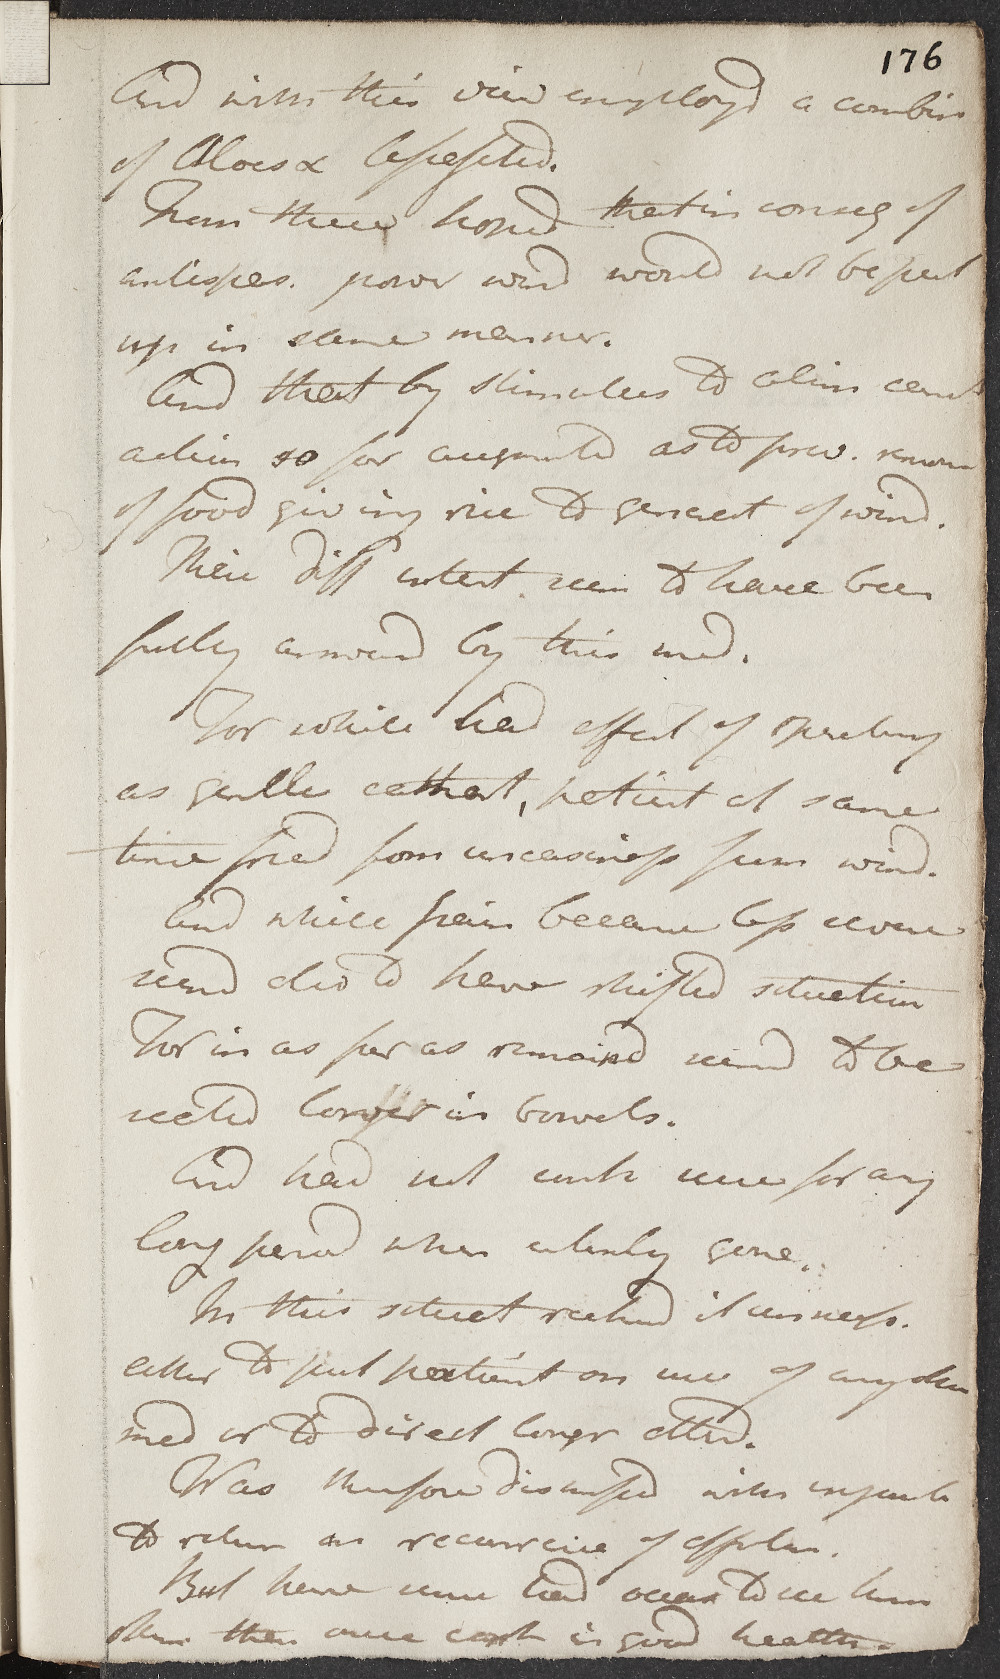 176
And with this view employd a combin
of Aloes &
From these hopd that in conseq of
antispas. power wind would not be pent
up in same manner.
And that by stimulus to alim canal
action so far augmented as to prev.
of food giving rise to generat of wind.
These diff intent. seem to have been
fully answerd by this med.
For while had effect of operating
as gentle cathart, patient at same
time freed from uneasiness from wind.
And while pain became less severe
seemd also to have shifted situation
For in as far as remaind seemd to be
seated lower in bowels.
And had not made use for any
long period when entirely gone.
In this situat reckond it unness.
either to put patient on use of any other
med or to direct longer attend.
Was therefore dismissed with
to return on recurrence of affection.
But have since had occas to see him
than once in good health.